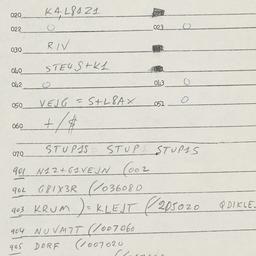 020 KA,L81Z1
022 0 023 0
030 RIV
040 STE4S+K1
042 0 043 0
050 VEJG = S+L8AX 052 0
060 +/$
070 STUP1S STUP STUP1S
901 N1Z+G1VEJN (002
902 G81X3R (/036080
903 KRUM)=KLEJT (/205020 QDIKLE
904 NUVM7T (/007060
905 DORF (/007020